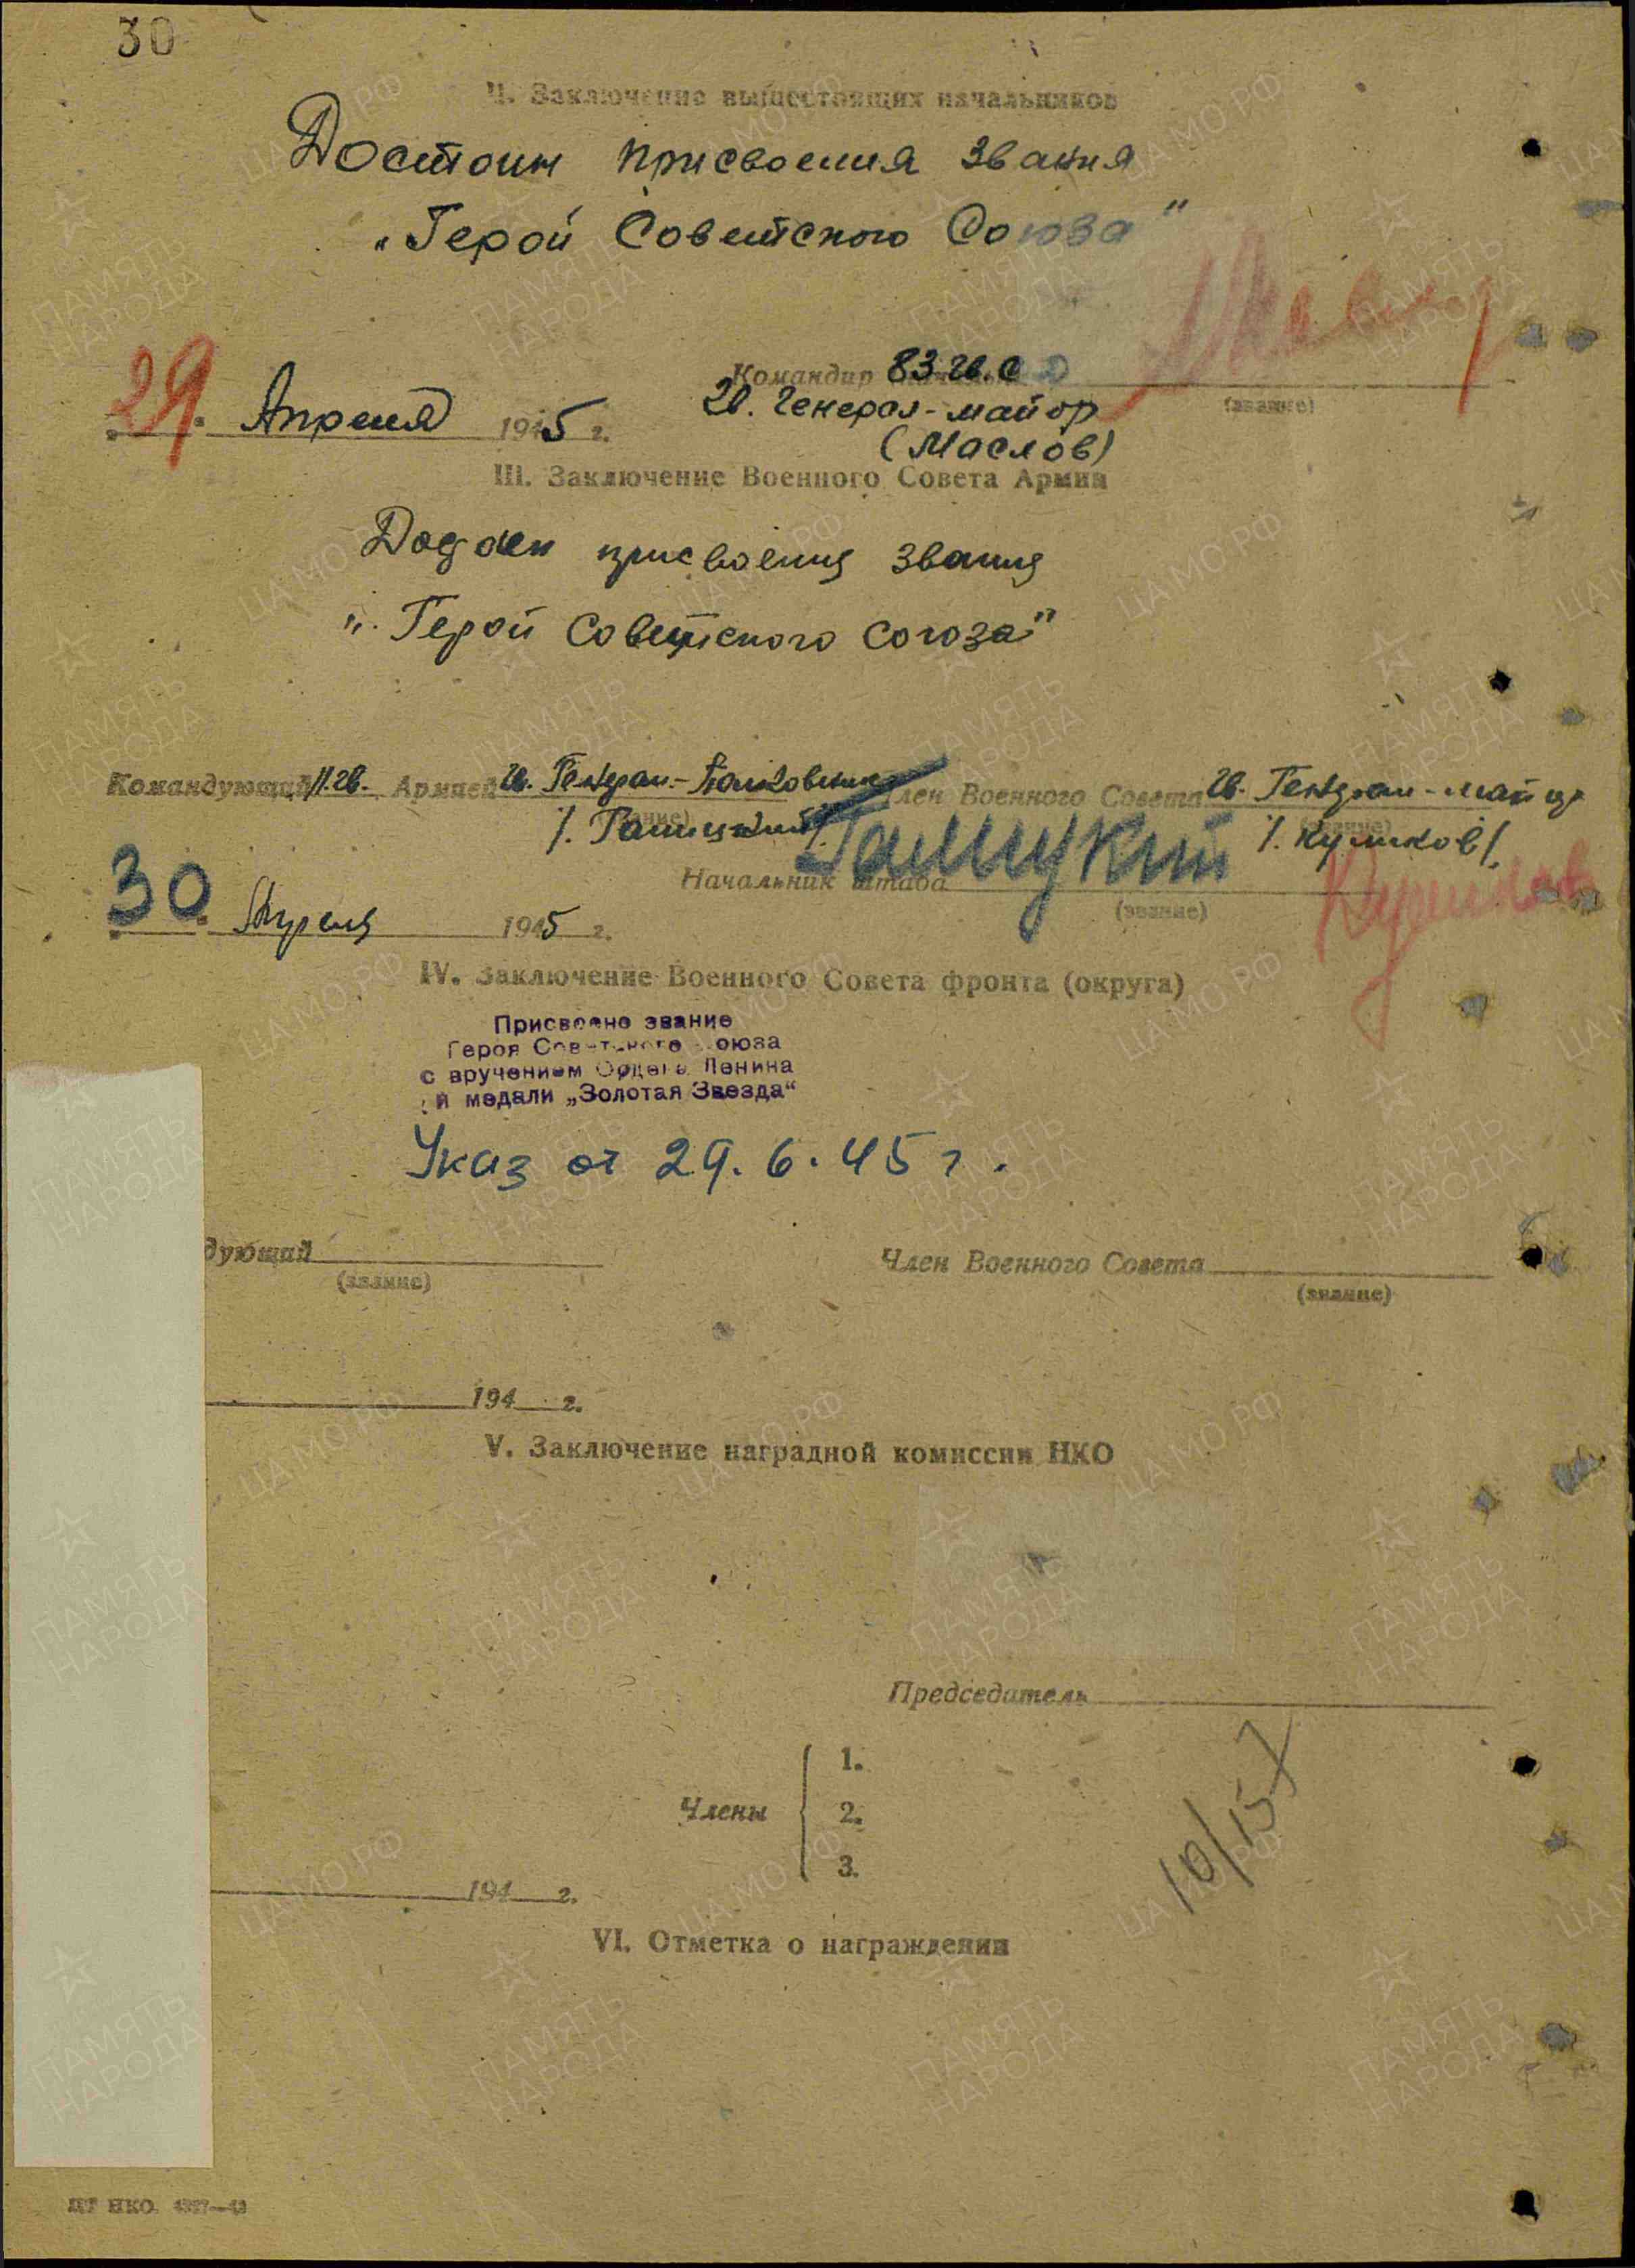 30
II. Заключение вышестоящих начальников
Достоин присвоения звания
„Герой Советского Союза"
Командир 83 гв. сд
(звание)
гв. Генерал-майор
29 Апреля 1945 г.
(Маслов)
III. Заключение Военного Совета Армии
присвоения звания
„Герой Советского Союза"
Командующий 11 гв. Армией гв. Генерал-Полковник Член Военного Совета гв. Генерал-майор
(звание) (звание)
/. Галицкий/. /. Куликов/.
Галицкий
Начальник штаба
(звание)
Куликов
30 Апреля 1945 г.
IV. Заключение Военного Совета фронта (округа)
Присвоено звание
Героя Советского Союза
с вручением Ордена Ленина
и медали „Золотая Звезда"
Указ от 29.6.45 г.
дующий Член Военного Совета
(звание) (звание)
194 г.
V. Заключение наградной комиссии НКО
Председатель
Члены
1.
2.
3.
10/157
194 г.
VI. Отметка о награждении
ПАМЯТЬ НАРОДА
ЦАМО РФ